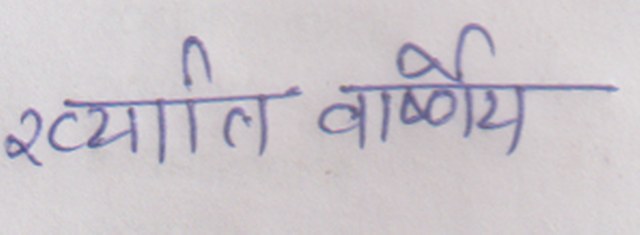 ख्याति वार्ष्णेय